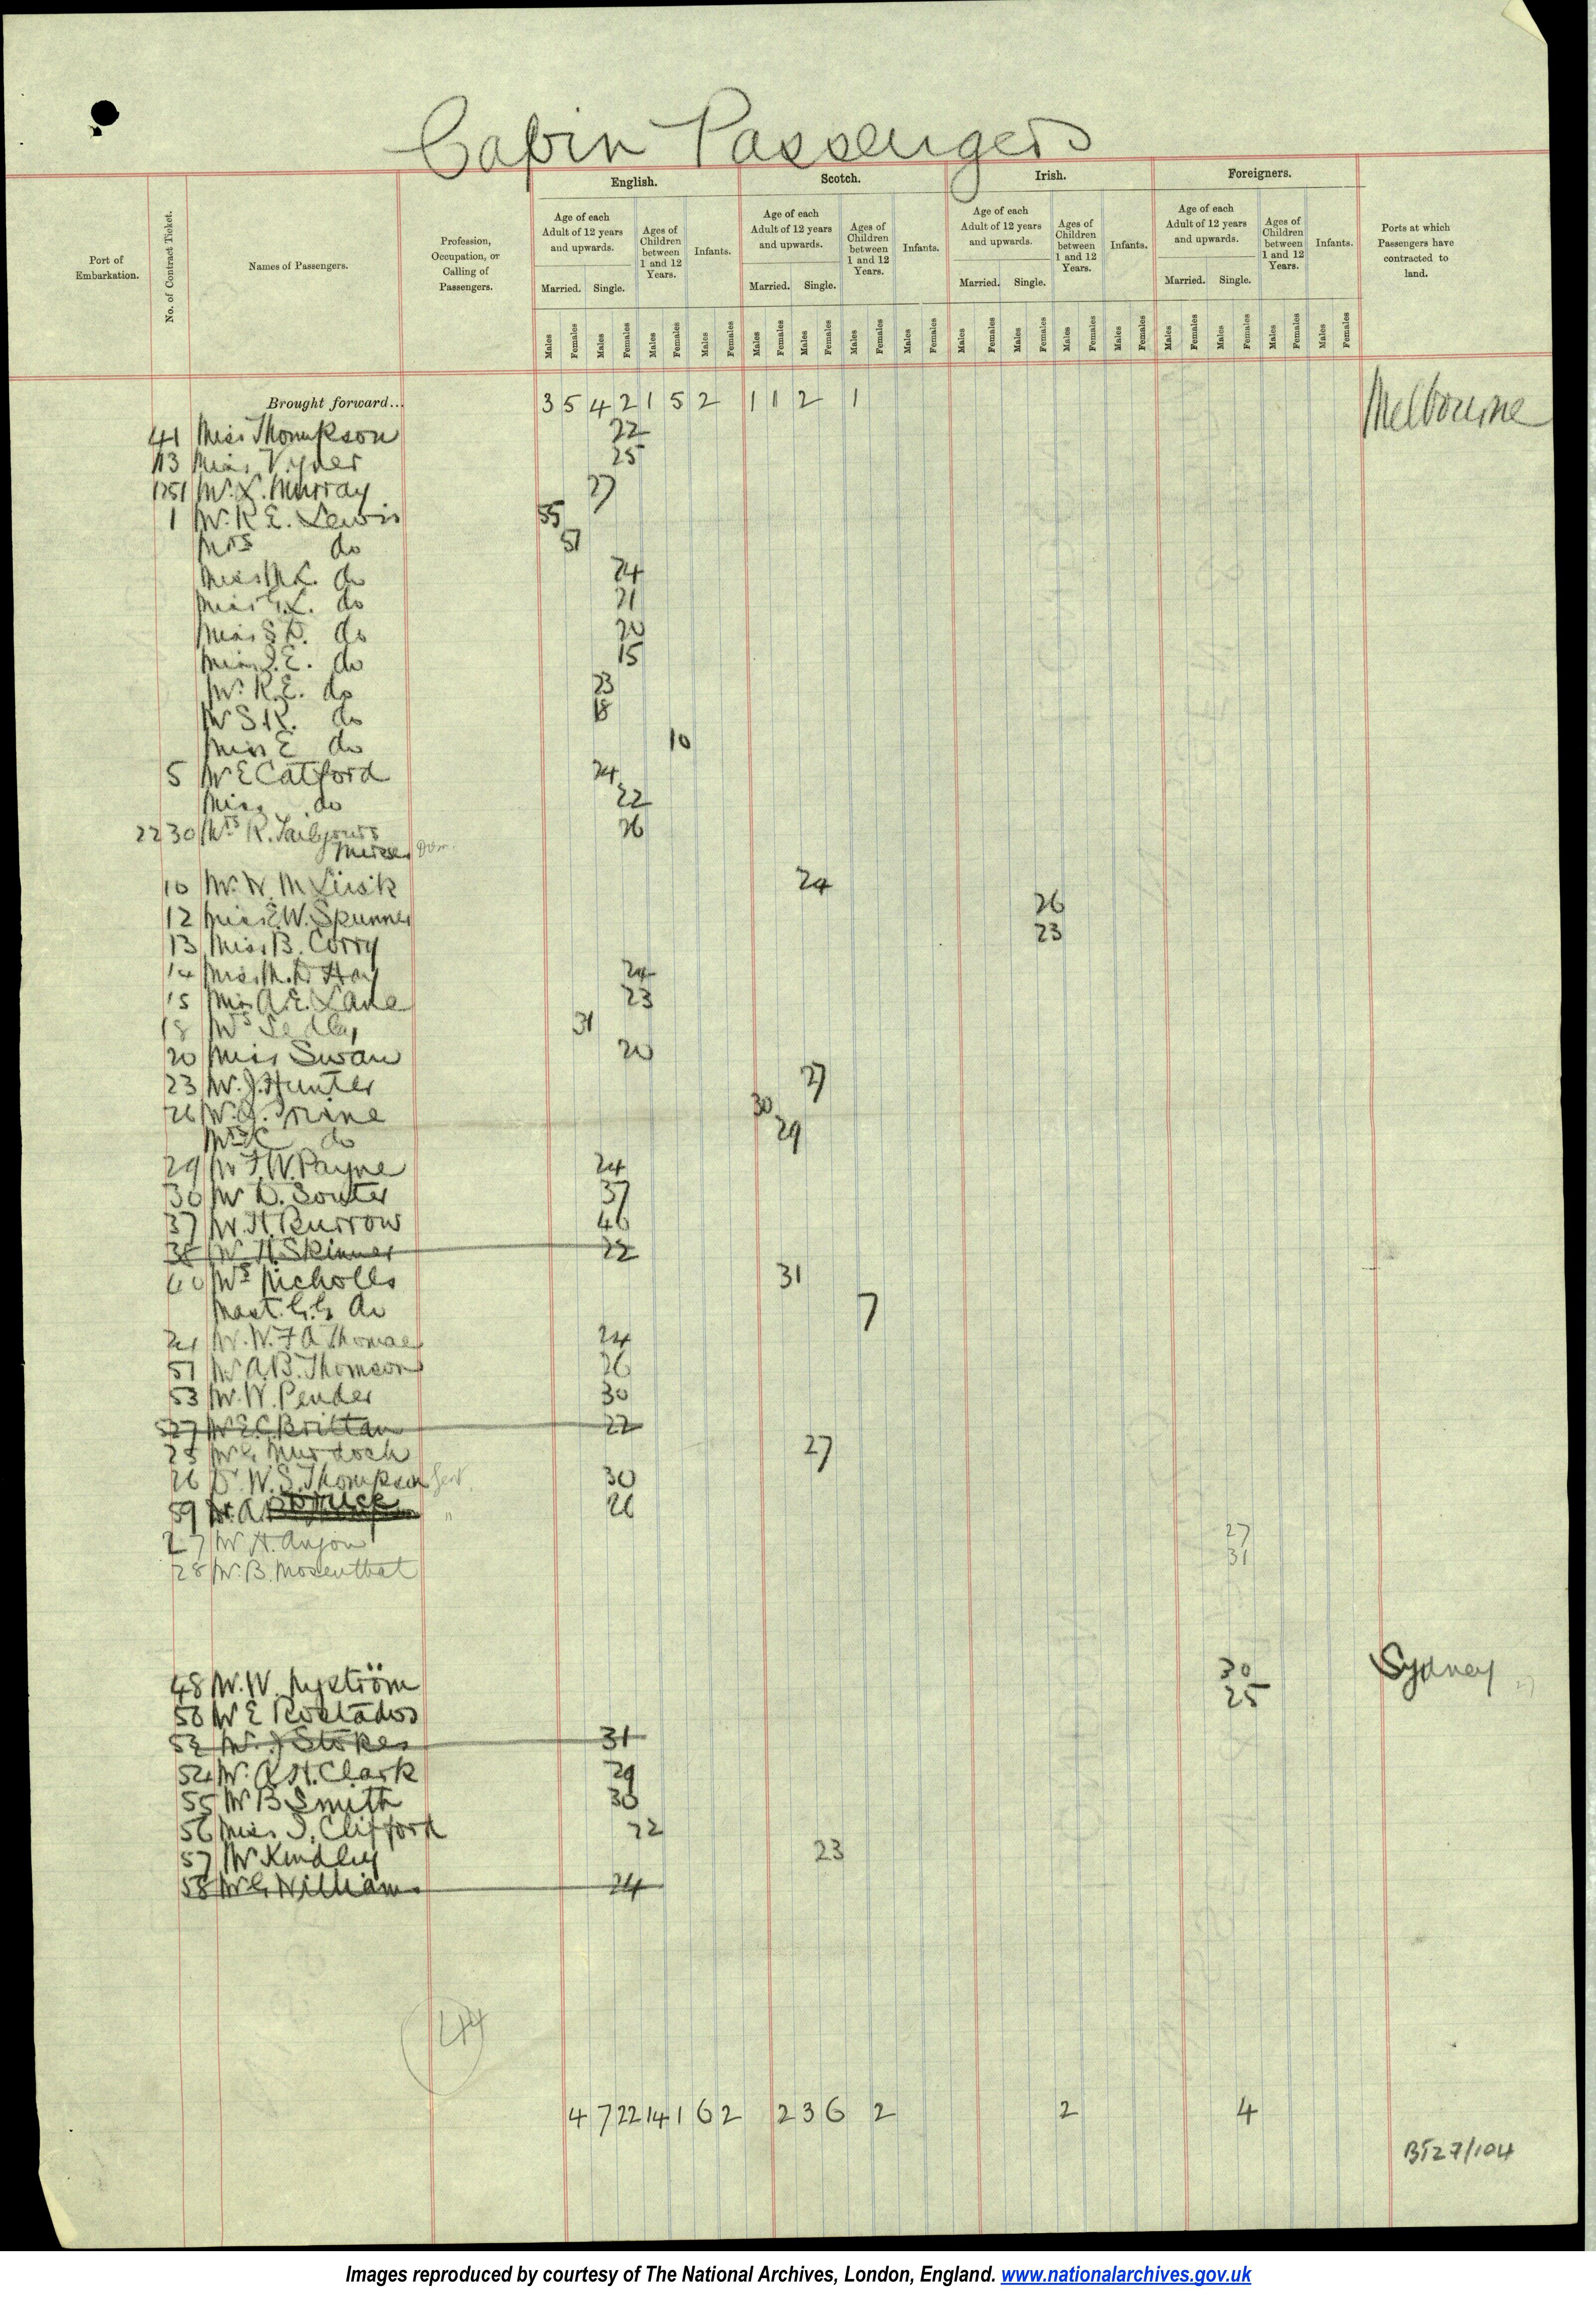 Cabin Passengers
English. Scotch. Irish. Foreigners.
Port of Embarkation.
No. of Contract Ticket.
Names of Passengers.
Profession, Occupation, or Calling of Passengers.
Age of each Adult of 12 years and upwards. Ages of Children between 1 and 12 Years. Infants.
Age of each Adult of 12 years and upwards. Ages of Children between 1 and 12 Years. Infants.
Age of each Adult of 12 years and upwards. Ages of Children between 1 and 12 Years. Infants.
Age of each Adult of 12 years and upwards. Ages of Children between 1 and 12 Years. Infants.
Ports at which Passengers have contracted to land.
Married. Single. Married. Single. Married. Single. Married. Single.
Males Females Males Females Males Females Males Females Males Females Males Females Males Females Males Females Males Females Males Females Males Females Males Females Males Females Males Females Males Females Males Females
Brought forward... 3 5 4 2 1 5 2 1 1 2 1 Melbourne
41 Miss Thompkson 22
113 Miss Vyner 25
1251 Mr. L. Murray 27
1 Mr. R E. Lewis 55
Mrs do 51
Miss M L. do 24
Miss G. L. do 21
Miss S D. do 20
Miss I. E. do 15
Mr. R. E. do 23
Mr S. R. do 18
Miss E do 10
5 Mr E Catford 24
Miss do 22
2230 Mrs R. Tailyours 26
Mercer Dom.
10 Mr. W. M Lusk 24
12 Miss E. W. Spunner 26
13 Miss B. Corry 23
14 Miss M. D. Hay 24
15 Miss A. E. Lane 23
18 Mrs Sedley 31
20 Miss Swan 20
23 Mr. J. Hunter 27
26 Mr. 30
Mrs C do 29
29 Mr F. W. Payne 24
30 Mr D. Souter 37
37 Mr. H. Burrow 46
38 Mr H. Skinner 22
40 Mrs Nicholls 31
Mast. G. G. do 7
21 Mr. W. F A Thomas 24
51 Mr A. B. Thomson 26
53 Mr. W. Pender 30
527 Mr E. C. Brittan 22
25 Mr G. Murdoch 27
26 Dr W. S. Thompson Gent. 30
59 Mr. A. Bruce " 26
27 Mr H. Anjou 27
28 Mr. B. Mosenthal 31
48 Mr. W. Nyström 30 Sydney
50 Mr E Rostados 25
52 Mr. J Stokes 31
54 Mr. A. H. Clark 29
55 Mr B Smith 30
56 Miss I. Clifford 22
57 Mr Kindley 23
58 Mr G. William 24
44
4 7 22 14 1 6 2 2 3 6 2 2 4
BT27/104
Images reproduced by courtesy of The National Archives, London, England. www.nationalarchives.gov.uk